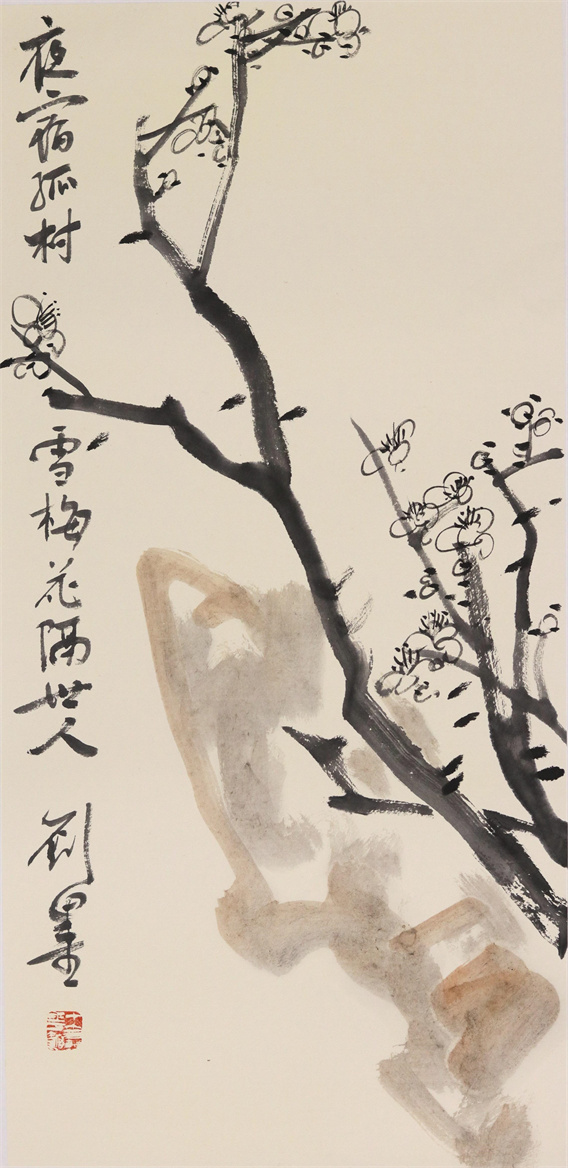 夜宿孤村雪梅花隔世人 刘墨